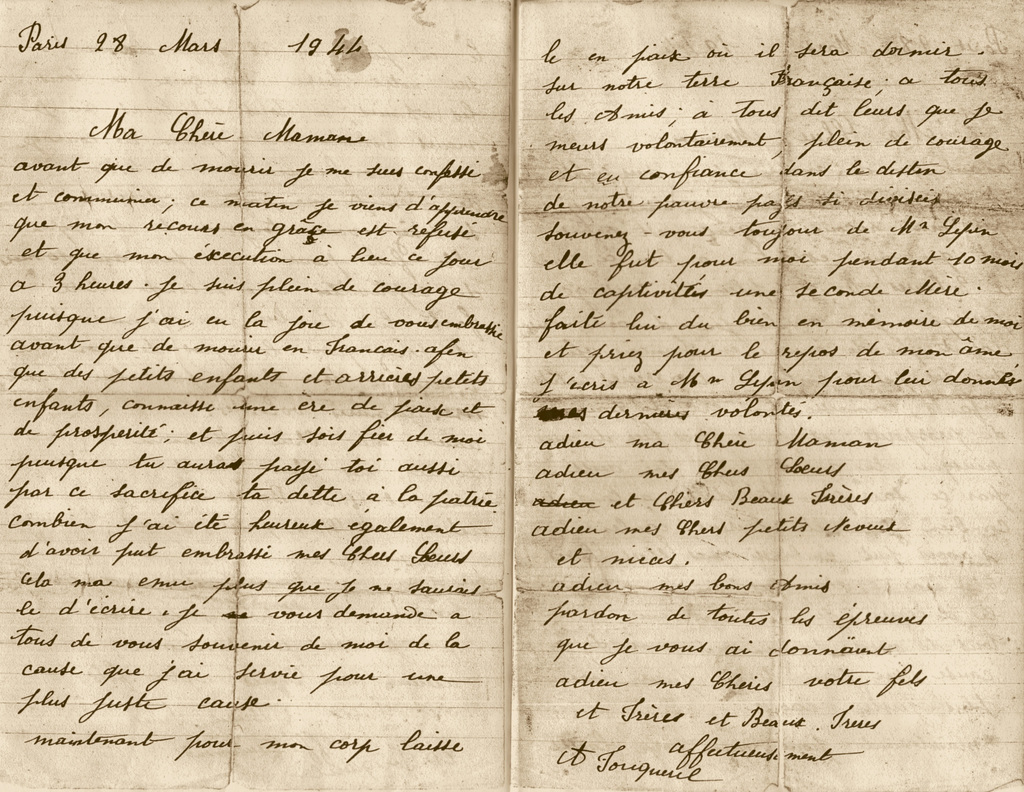 Paris 28 Mars 1944
Ma Chère Maman
avant que de mourir je me suis confessé
et communier ; ce matin je viens d'apprendre
que mon recours en grâce est refusé
et que mon éxecution à lieu ce jour
a 3 heures. je suis plein de courage
puisque j'ai eu la joie de vous embrassé
avant que de mourir en Francais. afin
que des petits enfants et arrières petits
enfants, connaisse une ère de paix et
de prosperité ; et puis sois fier de moi
puisque tu auras payé toi aussi
par ce sacrifice ta dette à la patrie
combien j'ai été heureux également
d'avoir put embrassé mes Chers Sœurs
cela ma emu plus que je ne saurais
le d'écrire. je vous demande a
tous de vous souvenir de moi de la
cause que j'ai servie pour une
plus juste cause.
maintenant pour mon corp laisse
le en paix où il sera dormir.
sur notre terre Française ; a tous
les Amis ; à tous dit leurs que je
meurs volontairement, plein de courage
et en confiance dans le destin
de notre pauvre pays si divisés
souvenez-vous toujour de Mme Lepin
elle fut pour moi pendant 10 mois
de captivittés une seconde Mère.
faite lui du bien en mémoire de moi
et priez pour le repos de mon âme
j'écris a Mme Lepin pour lui donnés
mes dernières volontés.
adieu ma Chère Maman
adieu mes Chers Sœurs
adieu et Chers Beaux Frères
adieu mes Chers petits Neveux
et nieces.
adieu mes bons Amis
pardon de toutes les épreuves
que je vous ai donnaient
adieu mes Cheris votre fils
et Frères et Beaux. Freres
affectueusement
A